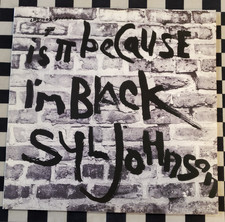 is it because
i'm BLACK
SYL JOHNSON